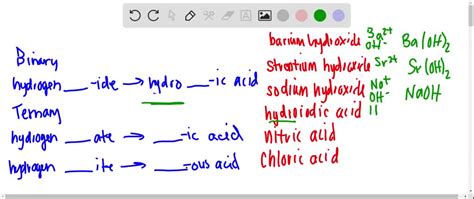 Binary
hydrogen ___-ide → hydro ___-ic acid
Ternary
hydrogen ___ate → ___-ic acid
hydrogen ___ite → ___-ous acid
barium hydroxide Ba²⁺ OH⁻ Ba(OH)₂
strontium hydroxide Sr²⁺ Sr(OH)₂
sodium hydroxide Na⁺ OH⁻ NaOH
hydroiodic acid
nitric acid
chloric acid